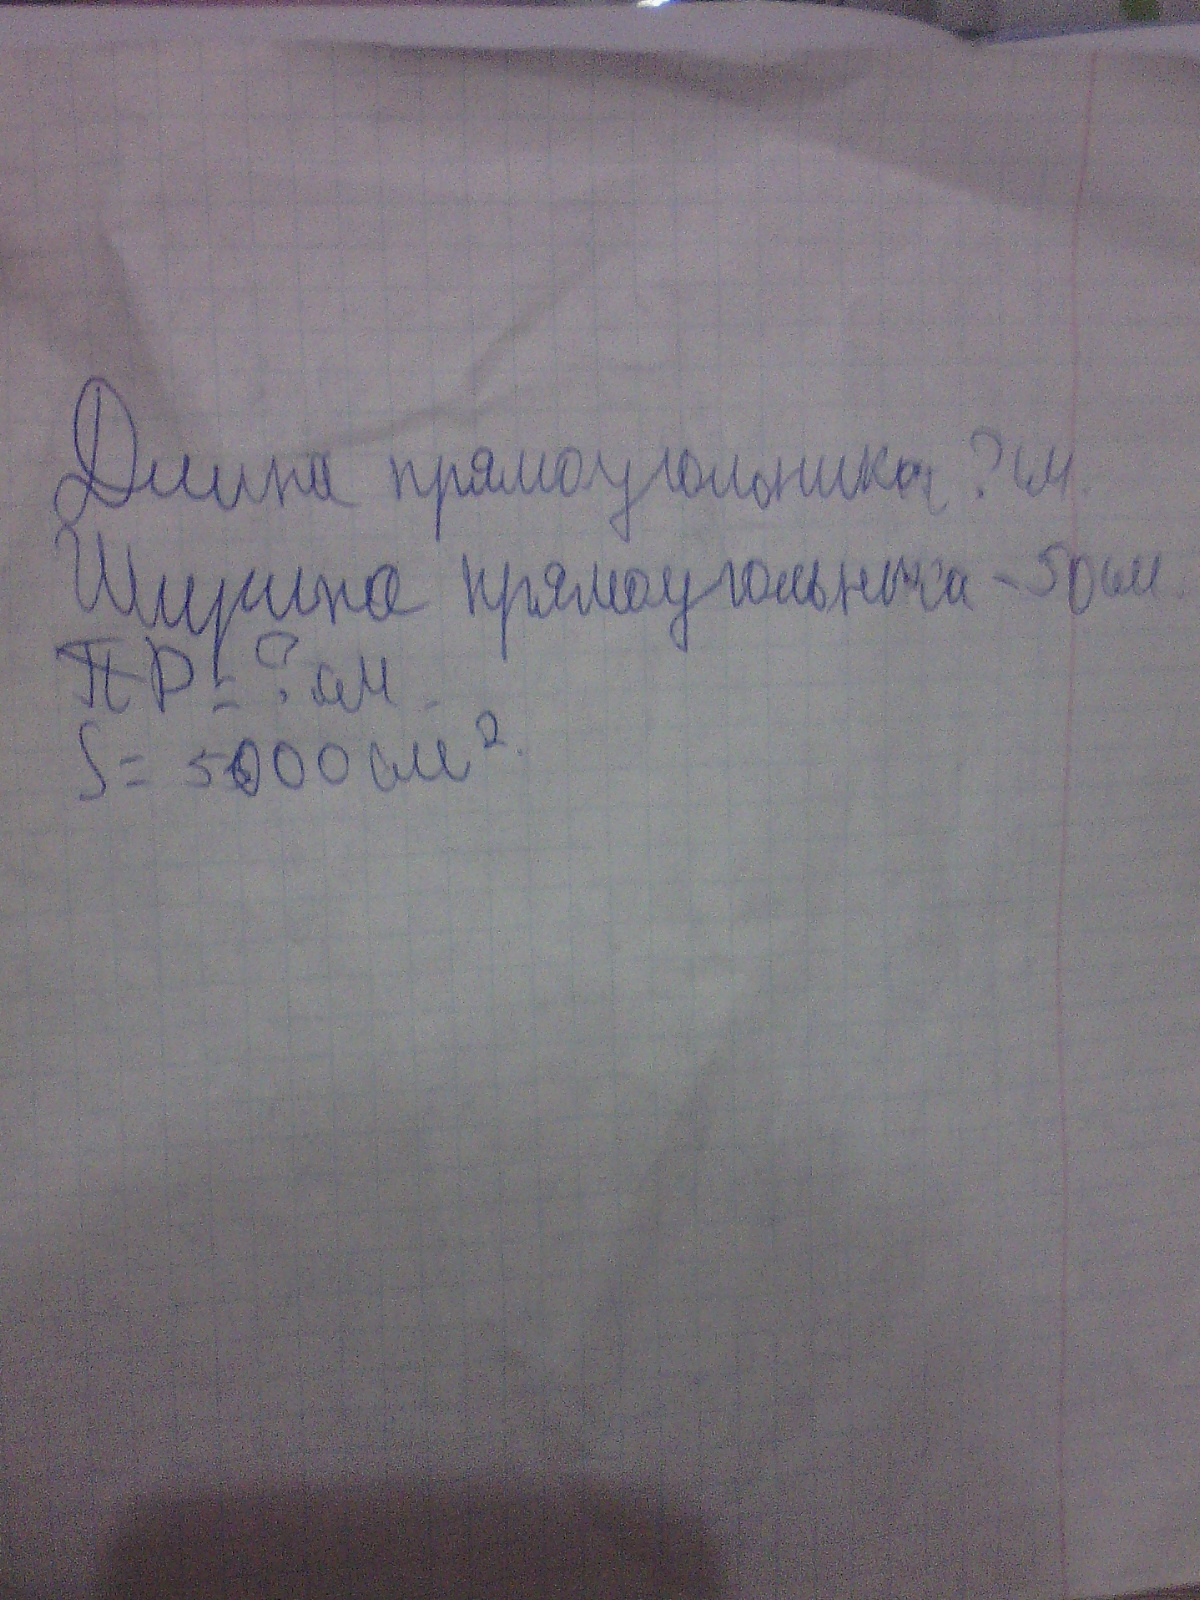 Длина прямоугольника ? см.
Ширина прямоугольника - 50 см.
ПР = ? см.
S = 5000 см².